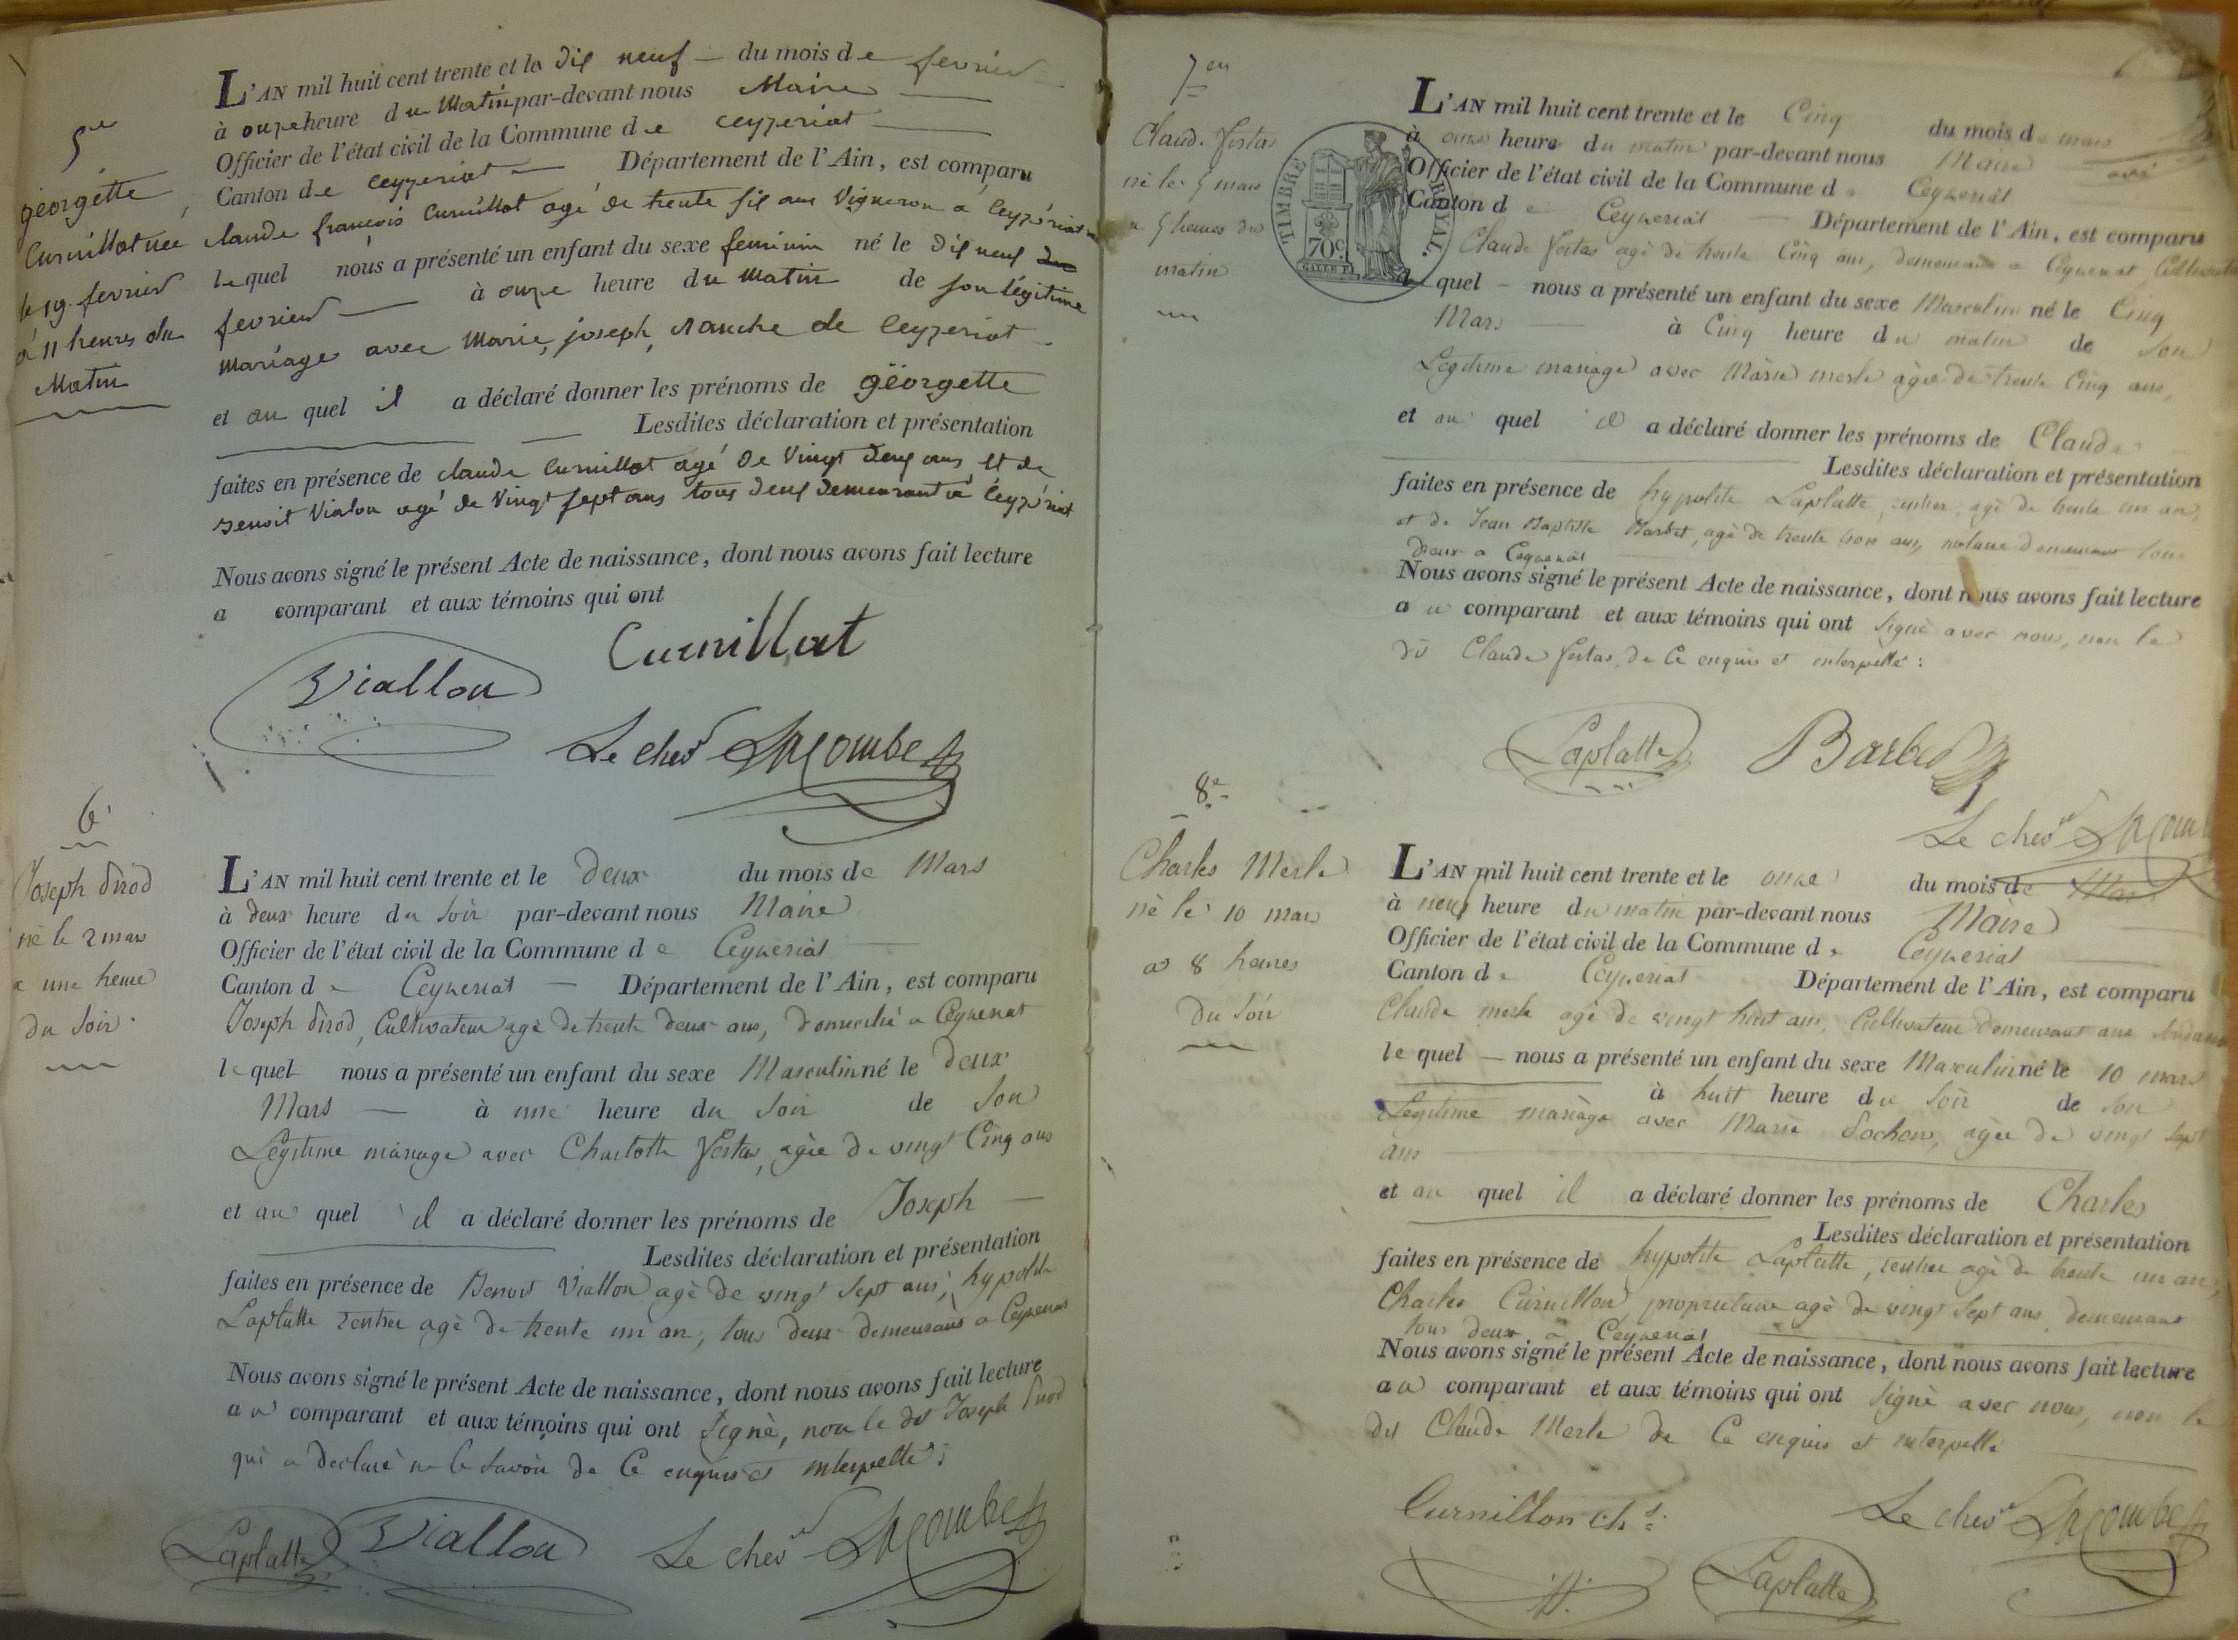 5e
georgette
Curnillat née
le 19 fevrier
à 11 heures du
Matin
L'AN mil huit cent trente et le dix neuf du mois de fevrier
à onze heure du Matin par-devant nous Maire
Officier de l'état civil de la Commune de ceyzeriat
Canton de ceyzeriat Département de l'Ain, est comparu
claude françois Curnillat agé de trente six ans Vigneron a Ceyzériat
lequel nous a présenté un enfant du sexe feminin né le dix neuf
fevrier à onze heure du Matin de son légitime
mariage avec Marie, joseph, de Ceyzeriat
et au quel il a déclaré donner les prénoms de gëorgette
Lesdites déclaration et présentation
faites en présence de claude Curnillat agé de Vingt deux ans et de
Benoit Vialon agé de Vingt sept ans tous deux demeurant à Ceyzériat
Nous avons signé le présent Acte de naissance, dont nous avons fait lecture
a comparant et aux témoins qui ont
Curnillat
Viallon
Le chevr Lacombe
6e
Joseph Pirod
né le 2 mars
a une heure
du Soir.
L'AN mil huit cent trente et le Deux du mois de Mars
à deux heure du Soir par-devant nous Maire
Officier de l'état civil de la Commune de Ceyzeriat
Canton de Ceyzeriat Département de l'Ain, est comparu
Joseph Pirod, Cultivateur agé de trente deux ans, domicilié a Ceyzeriat
lequel nous a présenté un enfant du sexe Masculin né le Deux
Mars à une heure du Soir de Son
Légitime mariage avec Charlotte Festas, agée de vingt Cinq ans
et au quel il a déclaré donner les prénoms de Joseph
Lesdites déclaration et présentation
faites en présence de Benoit Viallon agé de vingt Sept ans, hypolite
Laplatte rentier agé de trente un an, tous deux demeurans a Ceyzeriat
Nous avons signé le présent Acte de naissance, dont nous avons fait lecture
au comparant et aux témoins qui ont Signé, non le dit Joseph Pirod
qui a declaré ne le Savoir de Ce enquis et interpellé;
Laplatte Viallon Le chevr Lacombe
7em
Claude Festas
né le 5 mars
a 5 heures du
matin
TIMBRE ROYAL.
70c.
L'AN mil huit cent trente et le Cinq du mois de mars
à onze heure du matin par-devant nous Maire
Officier de l'état civil de la Commune de Ceyzeriat
Canton de Ceyzeriat Département de l'Ain, est comparu
Claude Festas agé de trente Cinq ans, demeurant a Ceyzeriat, Cultivateur
quel nous a présenté un enfant du sexe Masculin né le Cinq
Mars à Cinq heure du matin de Son
Legitime mariage avec Marie merle agée de trente Cinq ans,
et au quel il a déclaré donner les prénoms de Claude
Lesdites déclaration et présentation
faites en présence de hypolite Laplatte, rentier, agé de trente un an,
et de Jean Baptiste Barbet, agé de trente trois ans, notaire demeurant tous
deux a Ceyzeriat
Nous avons signé le présent Acte de naissance, dont nous avons fait lecture
au comparant et aux témoins qui ont Signé avec nous, non le
dit Claude Festas, de Ce enquis et interpellé:
Laplatte Barbet
Le chevr Lacombe
8e
Charles Merle
né le 10 mars
a 8 heures
Du Soir
L'AN mil huit cent trente et le onze du mois de Mars
à neuf heure du matin par-devant nous Maire
Officier de l'état civil de la Commune de Ceyzeriat
Canton de Ceyzeriat Département de l'Ain, est comparu
Claude merle agé de vingt huit ans, Cultivateur Demeurant aux
le quel nous a présenté un enfant du sexe Masculin né le 10 mars
à huit heure du Soir de Son
Légitime mariage avec Marie Sochon, agée de vingt Sept
ans
et au quel il a déclaré donner les prénoms de Charles
Lesdites déclaration et présentation
faites en présence de hypolite Laplatte, rentier agé de trente un an,
Charles Curnillon, propriétaire agé de vingt Sept ans demeurant
tous deux a Ceyzeriat
Nous avons signé le présent Acte de naissance, dont nous avons fait lecture
au comparant et aux témoins qui ont Signé avec nous, non le
dit Claude Merle de Ce enquis et interpellé
Curnillon chs. Le chevr Lacombe
Laplatte